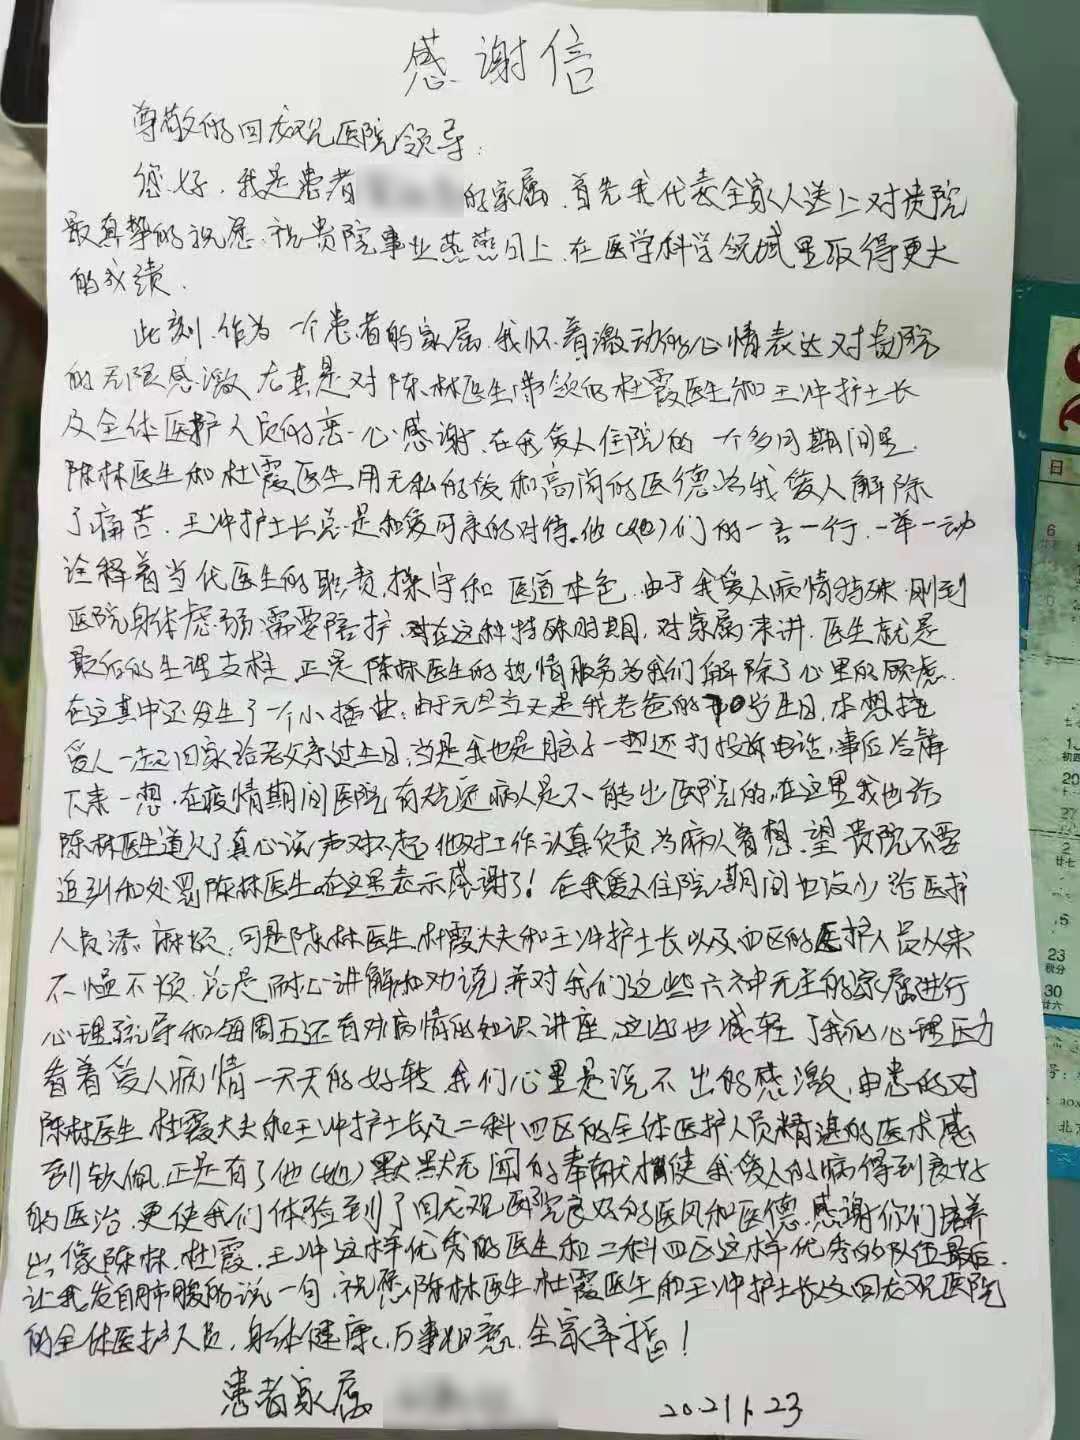 感谢信
尊敬的回龙观医院领导:
您好,我是患者 的家属,首先我代表全家人送上对贵院
最真挚的祝愿,祝贵院事业蒸蒸日上,在医学科学领域里取得更大
的成绩.
此刻,作为一个患者的家属,我怀着激动的心情表达对贵院
的无限感激,尤其是对陈林医生带领的杜霞医生和王冲护士长
及全体医护人员的衷心感谢,在我爱人住院的一个多月期间里.
陈林医生和杜霞医生用无私的爱和高尚的医德为我爱人解除
了痛苦.王冲护士长总是和爱可亲的对待。他(她)们的一言一行,一举一动
诠释着当代医生的职责,操守和医道本色.由于我爱人病情特殊,刚到
医院身体虚弱,需要陪护,在这种特殊时期,对家属来讲,医生就是
最后的生理支柱,正是陈林医生的热情服务为我们解除了心里的顾虑.
在这其中还发生了一个小插曲:由于元旦当天是我老爸的70岁生日,本想接
爱人一起回家给老父亲过生日,当是我也是脑子一热还打投诉电话,事后冷静
下来一想,在疫情期间医院有规定病人是不能出医院的,在这里我也给
陈林医生道欠了真心说声对不起,他对工作认真负责,为病人着想,望贵院不要
追到和处罚陈林医生。在这里表示感谢了!在我爱人住院期间也没少给医护
人员添麻烦,可是陈林医生,杜霞大夫和王冲护士长以及四区的医护人员从来
不愠不烦,总是耐心讲解和劝说,并对我们这些六神无主的家属进行
心理疏导和每周五还有对病情的知识讲座,这些也减轻了我们心理压力
看着爱人病情一天天的好转,我们心里是说不出的感激,由患的对
陈林医生,杜霞大夫和王冲护士长及二科四区的全体医护人员精湛的医术感
到钦佩,正是有了他(她)默默无闻的奉献才使我爱人的病得到良好
的医治,更使我们体验到了回龙观医院良好的医风和医德,感谢你们培养
出像陈林,杜霞,王冲这样优秀的医生和二科四区这样优秀的队伍,最后,
让我发自肺腑的说一句,祝愿陈林医生,杜霞医生和王冲护士长及回龙观医院
的全体医护人员,身体健康,万事如意,全家幸福!
患者家属
2021.1.23
日
6
初四
20
27
廿七
23
30
廿六